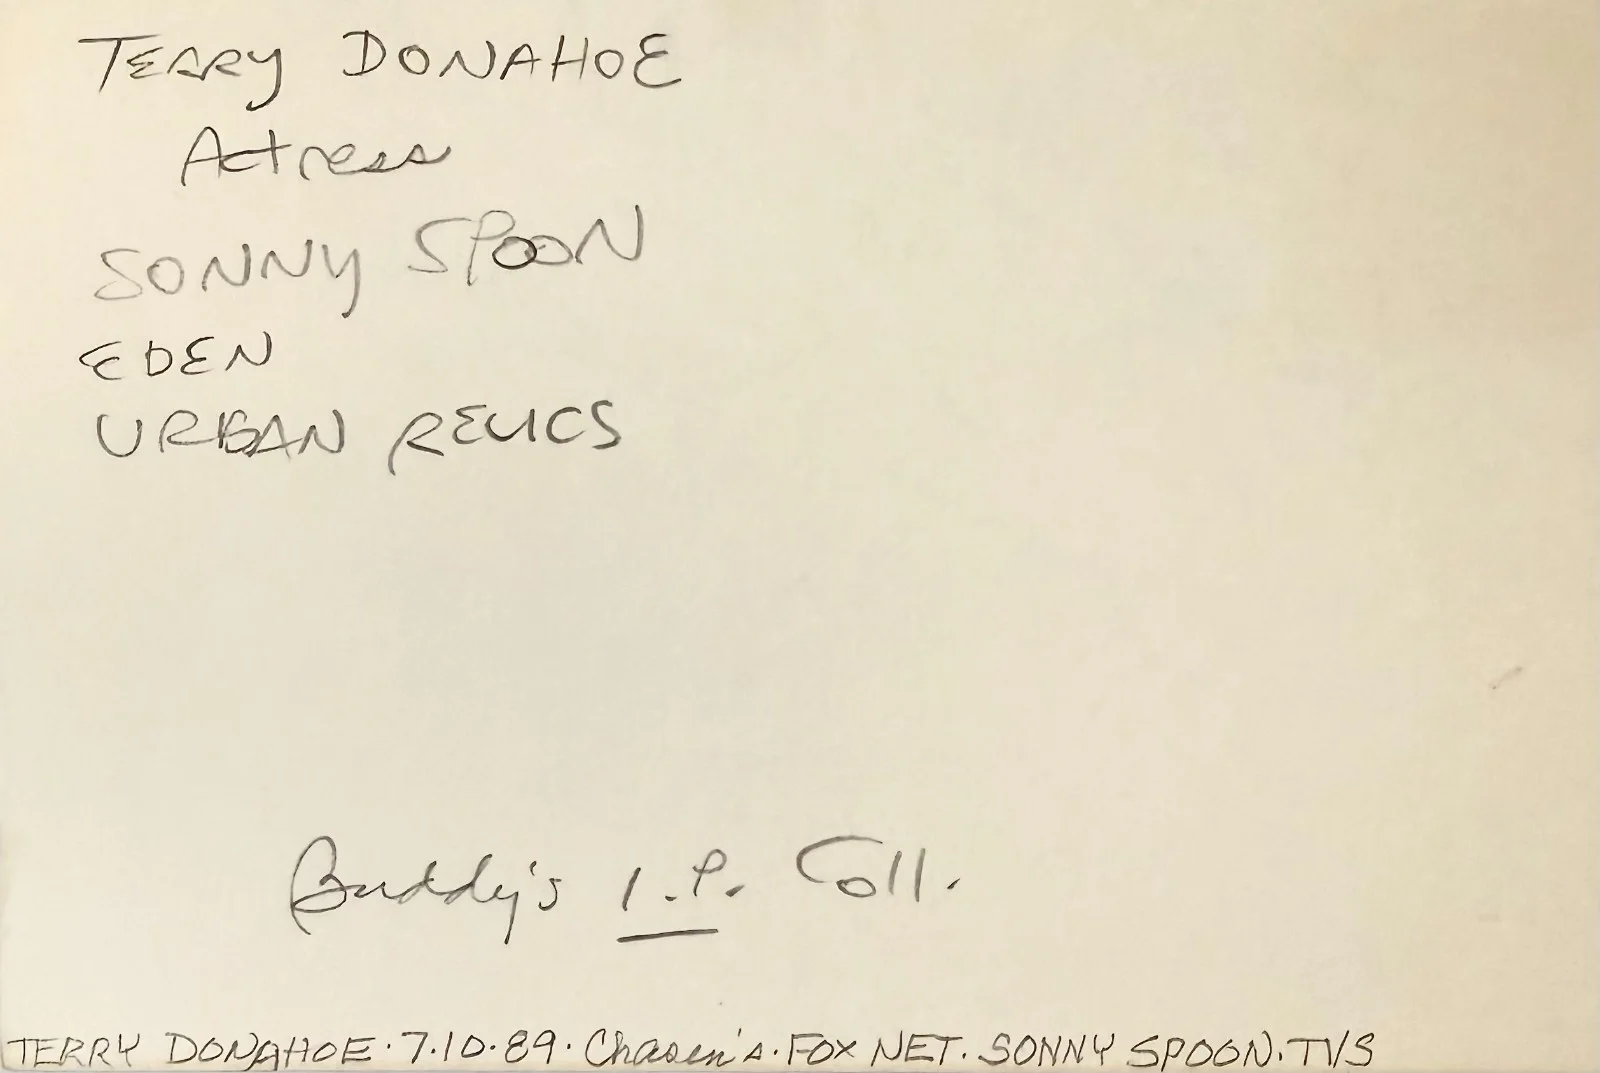 TERRY DONAHOE
Actress
SONNY SPOON
EDEN
URBAN RELICS
Buddy's I.P. Coll.
TERRY DONAHOE · 7.10.89 · Chasen's · FOX NET. SONNY SPOON. TVS